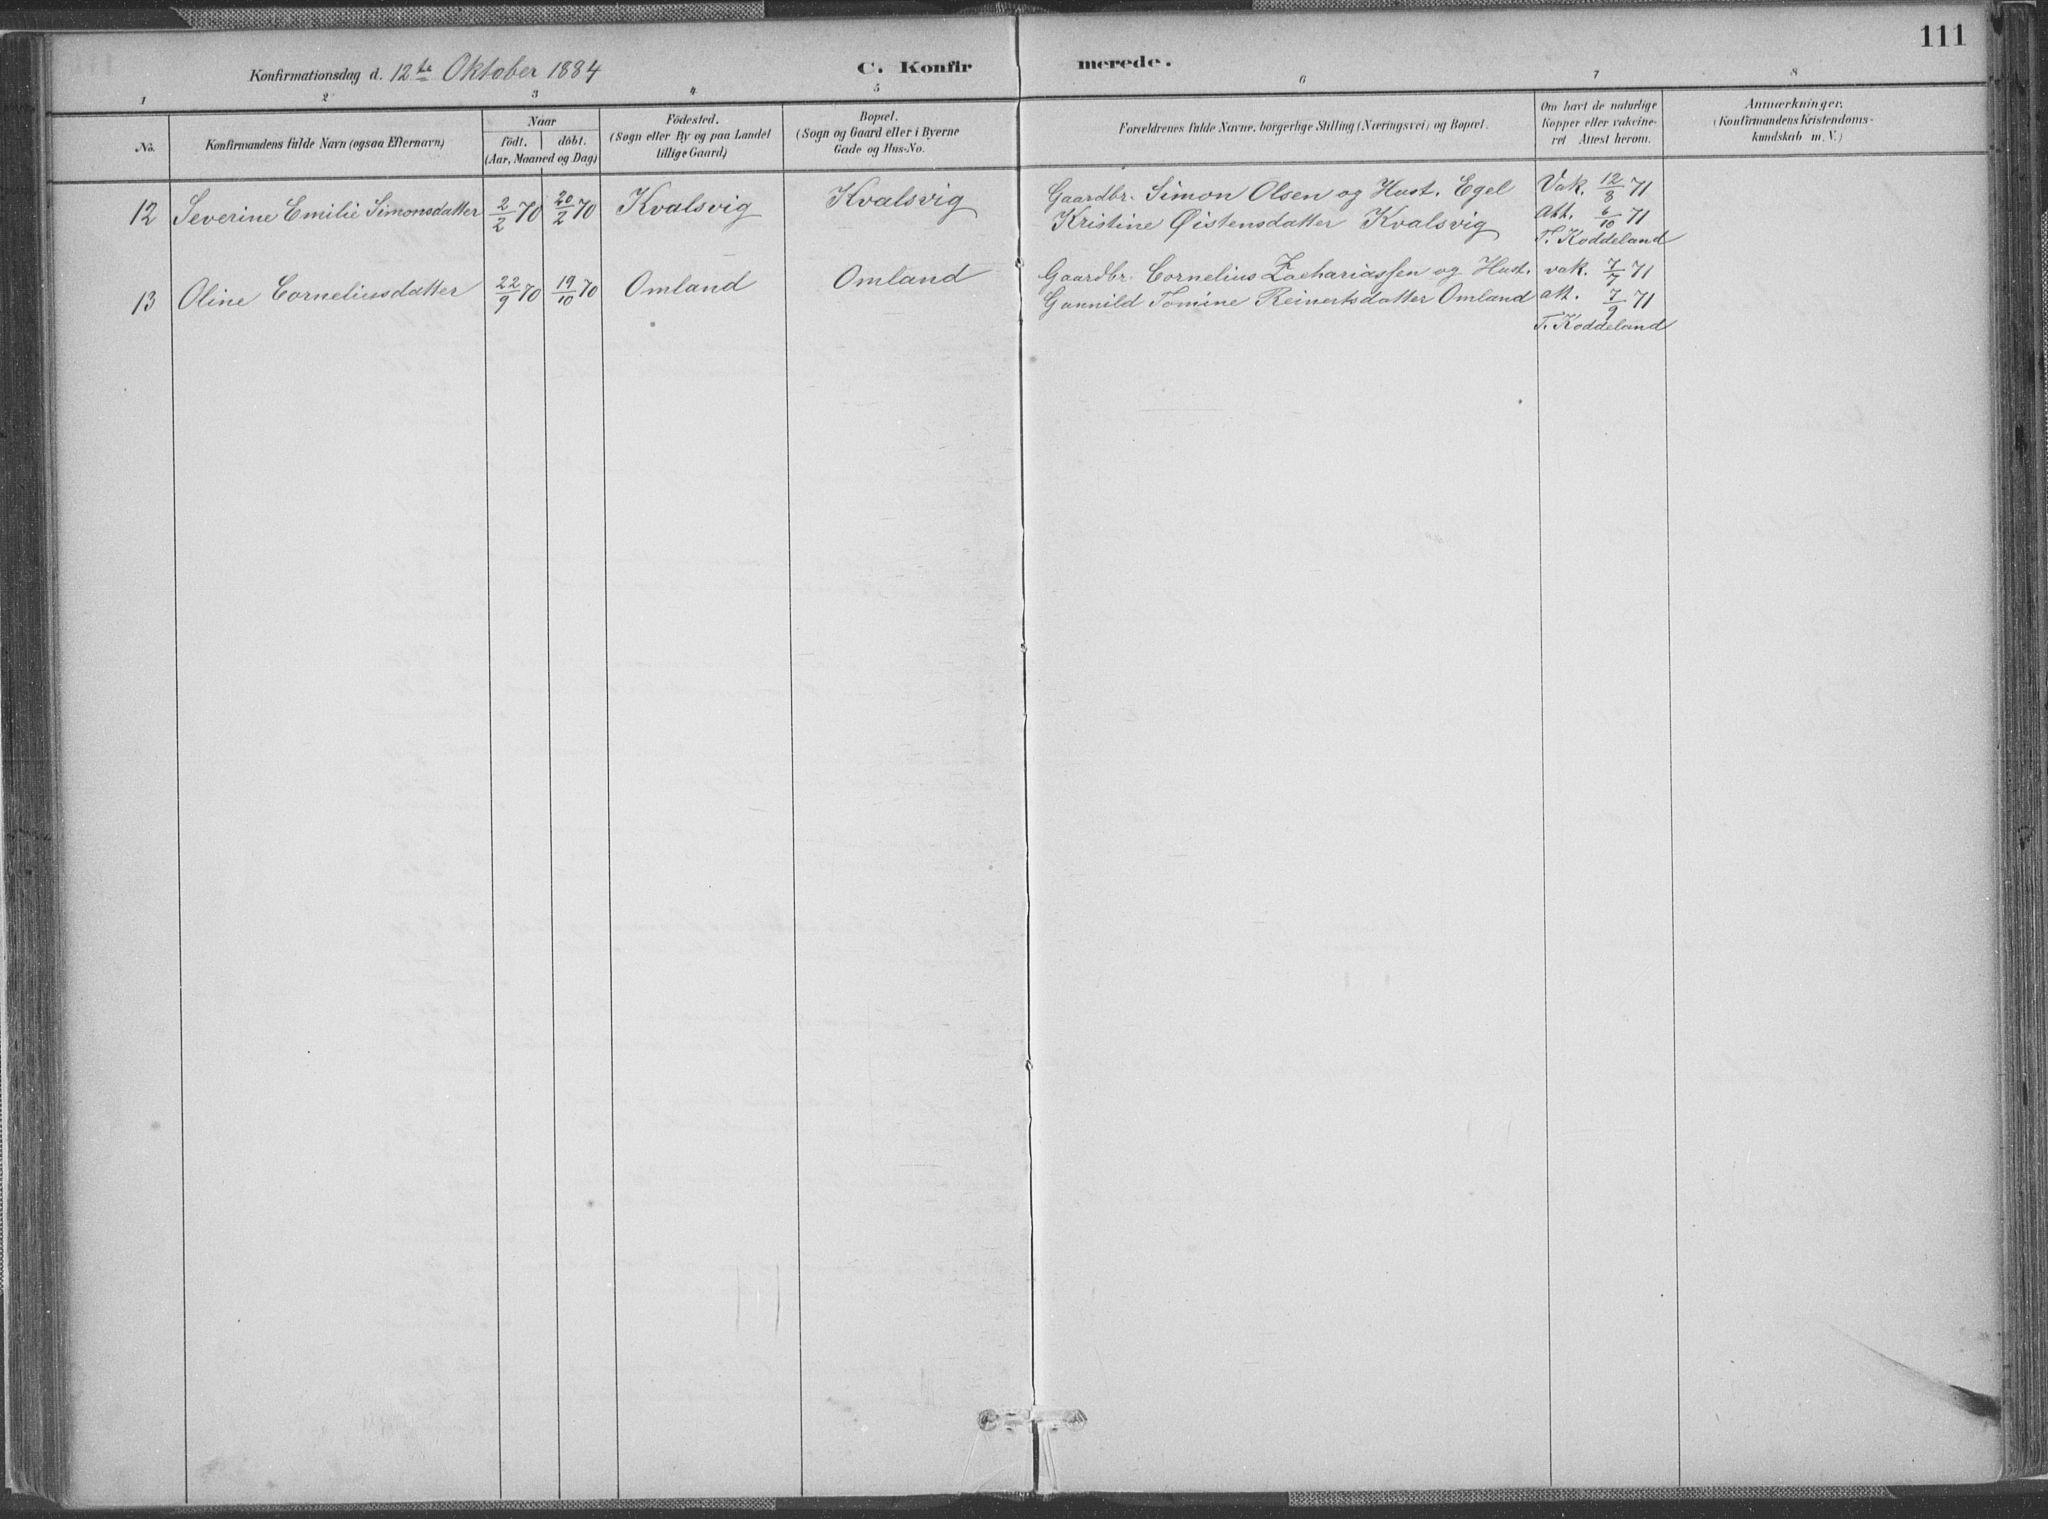 111
Konfirmationsdag d. 12te Oktober 1884
C. Konfirmerede.
1 2 3 4 5 6 7 8
No.
Konfirmandens fulde Navn (ogsaa Efternavn)
Naar
födt. döbt.
(Aar, Maaned og Dag)
Födested.
(Sogn eller By og paa Landet
tillige Gaard)
Bopæl.
(Sogn og Gaard eller i Byerne
Gade og Hus-No.
Forældrenes fulde Navne, borgerlige Stilling (Næringsvei) og Bopæl.
Om havt de naturlige
Kopper eller vakcine-
ret Attest herom.
Anmærkninger.
(Konfirmandens Kristendoms-
kundskab m. V.)
12 Severine Emilie Simonsdatter 2/2 70 20/2 70 Kvalsvig Kvalsvig
Gaardbr. Simon Olsen og Hust. Egel
Kristine Øistensdatter Kvalsvig
Vak. 12/8 71
Att. 6/10 71
T. Koddeland
13 Oline Corneliusdatter 22/9 70 19/10 70 Omland Omland
Gaardbr. Cornelius Zachariassen og Hust.
Gunnild Tomine Reinertsdatter Omland
vak. 7/7 71
att. 7/9 71
T. Koddeland